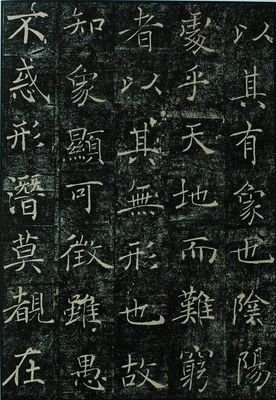 以其有象也陰陽
處乎天地而難窮
者以其無形也故
知象顯可徵雖愚
不惑形潛莫覩在